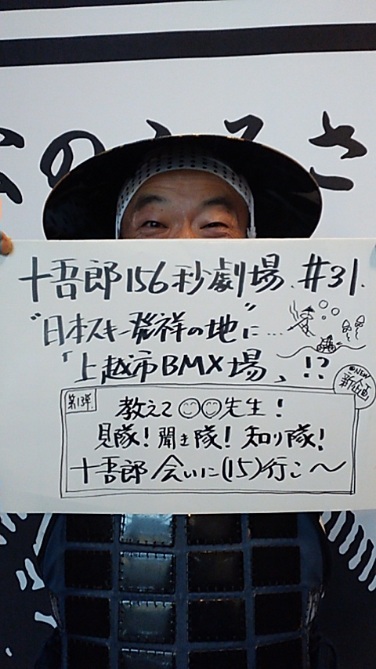 のふるさ
十吾郎156秒劇場 #31.
"日本スキー発祥の地"に…
「上越市BMX場」!?
NEW
新企画
第1弾
教えて○○先生!
見隊!聞き隊!知り隊!
十吾郎 会いに(15)行こ〜